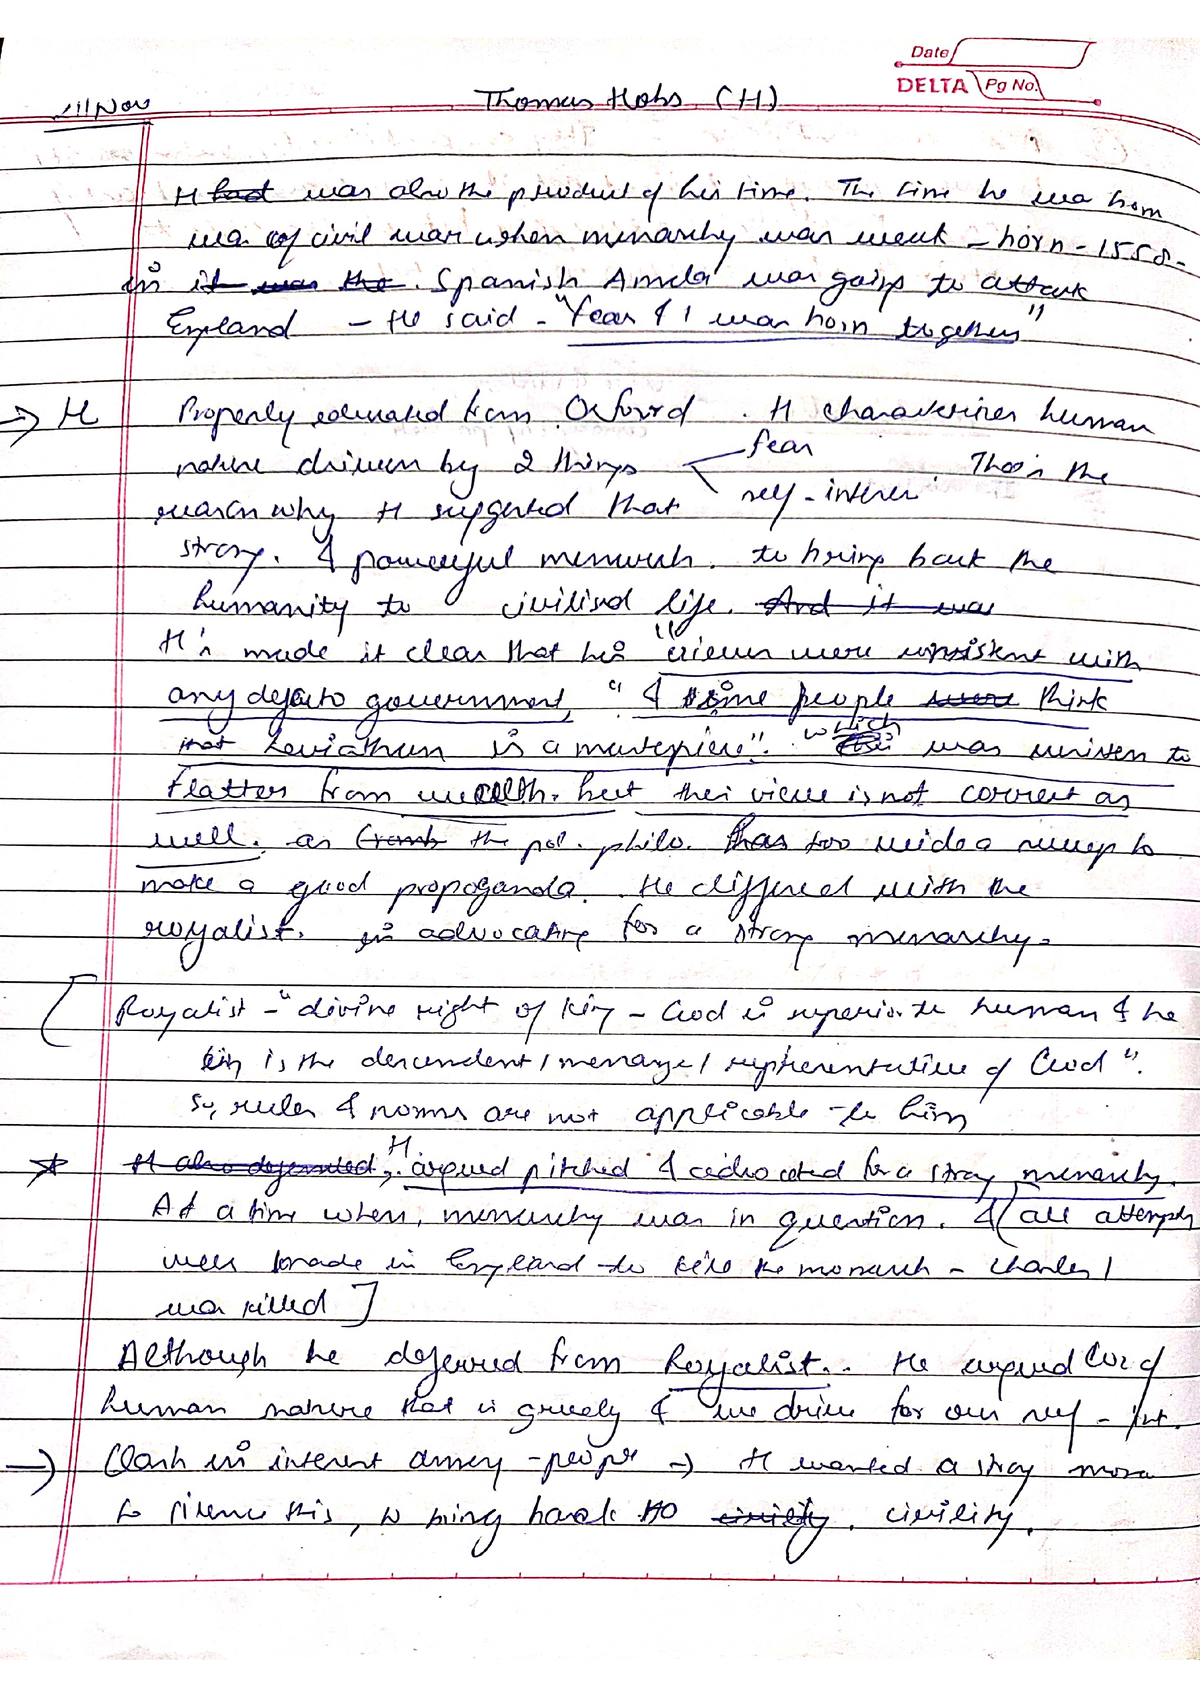 Date
DELTA Pg No.
Nov Thomas Hobs (H)
H had was also the product of his time. The time he was born
was of civil war when monarchy was weak - born - 1558.
in it was the. Spanish Armada was going to attack
England - He said - "Fear & I was born together"
→ H Properly educated from Oxford. H characterises human
nature driven by 2 things fear
self-interes. That's the
reason why H suggested that
strong. & powerful monarch. to bring back the
humanity to civilised life. And it was
H's made it clear that his "views were consistent with
any defacto government," & some people were think
that Leviathan is a masterpiece". which was written to
flatter from but their view is not correct as
well. as the pol. philo. has too wide a sweep to
make a good propoganda. He differed with the
royalist. in advocating for a strong monarchy.
Royalist - "divine right of king - God is superior to human & he
king is the descendent / messenge / representative of God".
So, rules & norms are not applicable to him
H also deferrated, H argued pitched & advocated for a strong monarchy.
At a time when, monarchy was in question. & (all attempts
were made in England to kill the monarch - Charles I
was killed ]
Although he deferred from Royalist.. He argued coz of
human nature that is greedy & we drive for our self-int.
→ Clash in interest among - people → H wanted a strong mona
to silence this, to bring back to civility. civility.